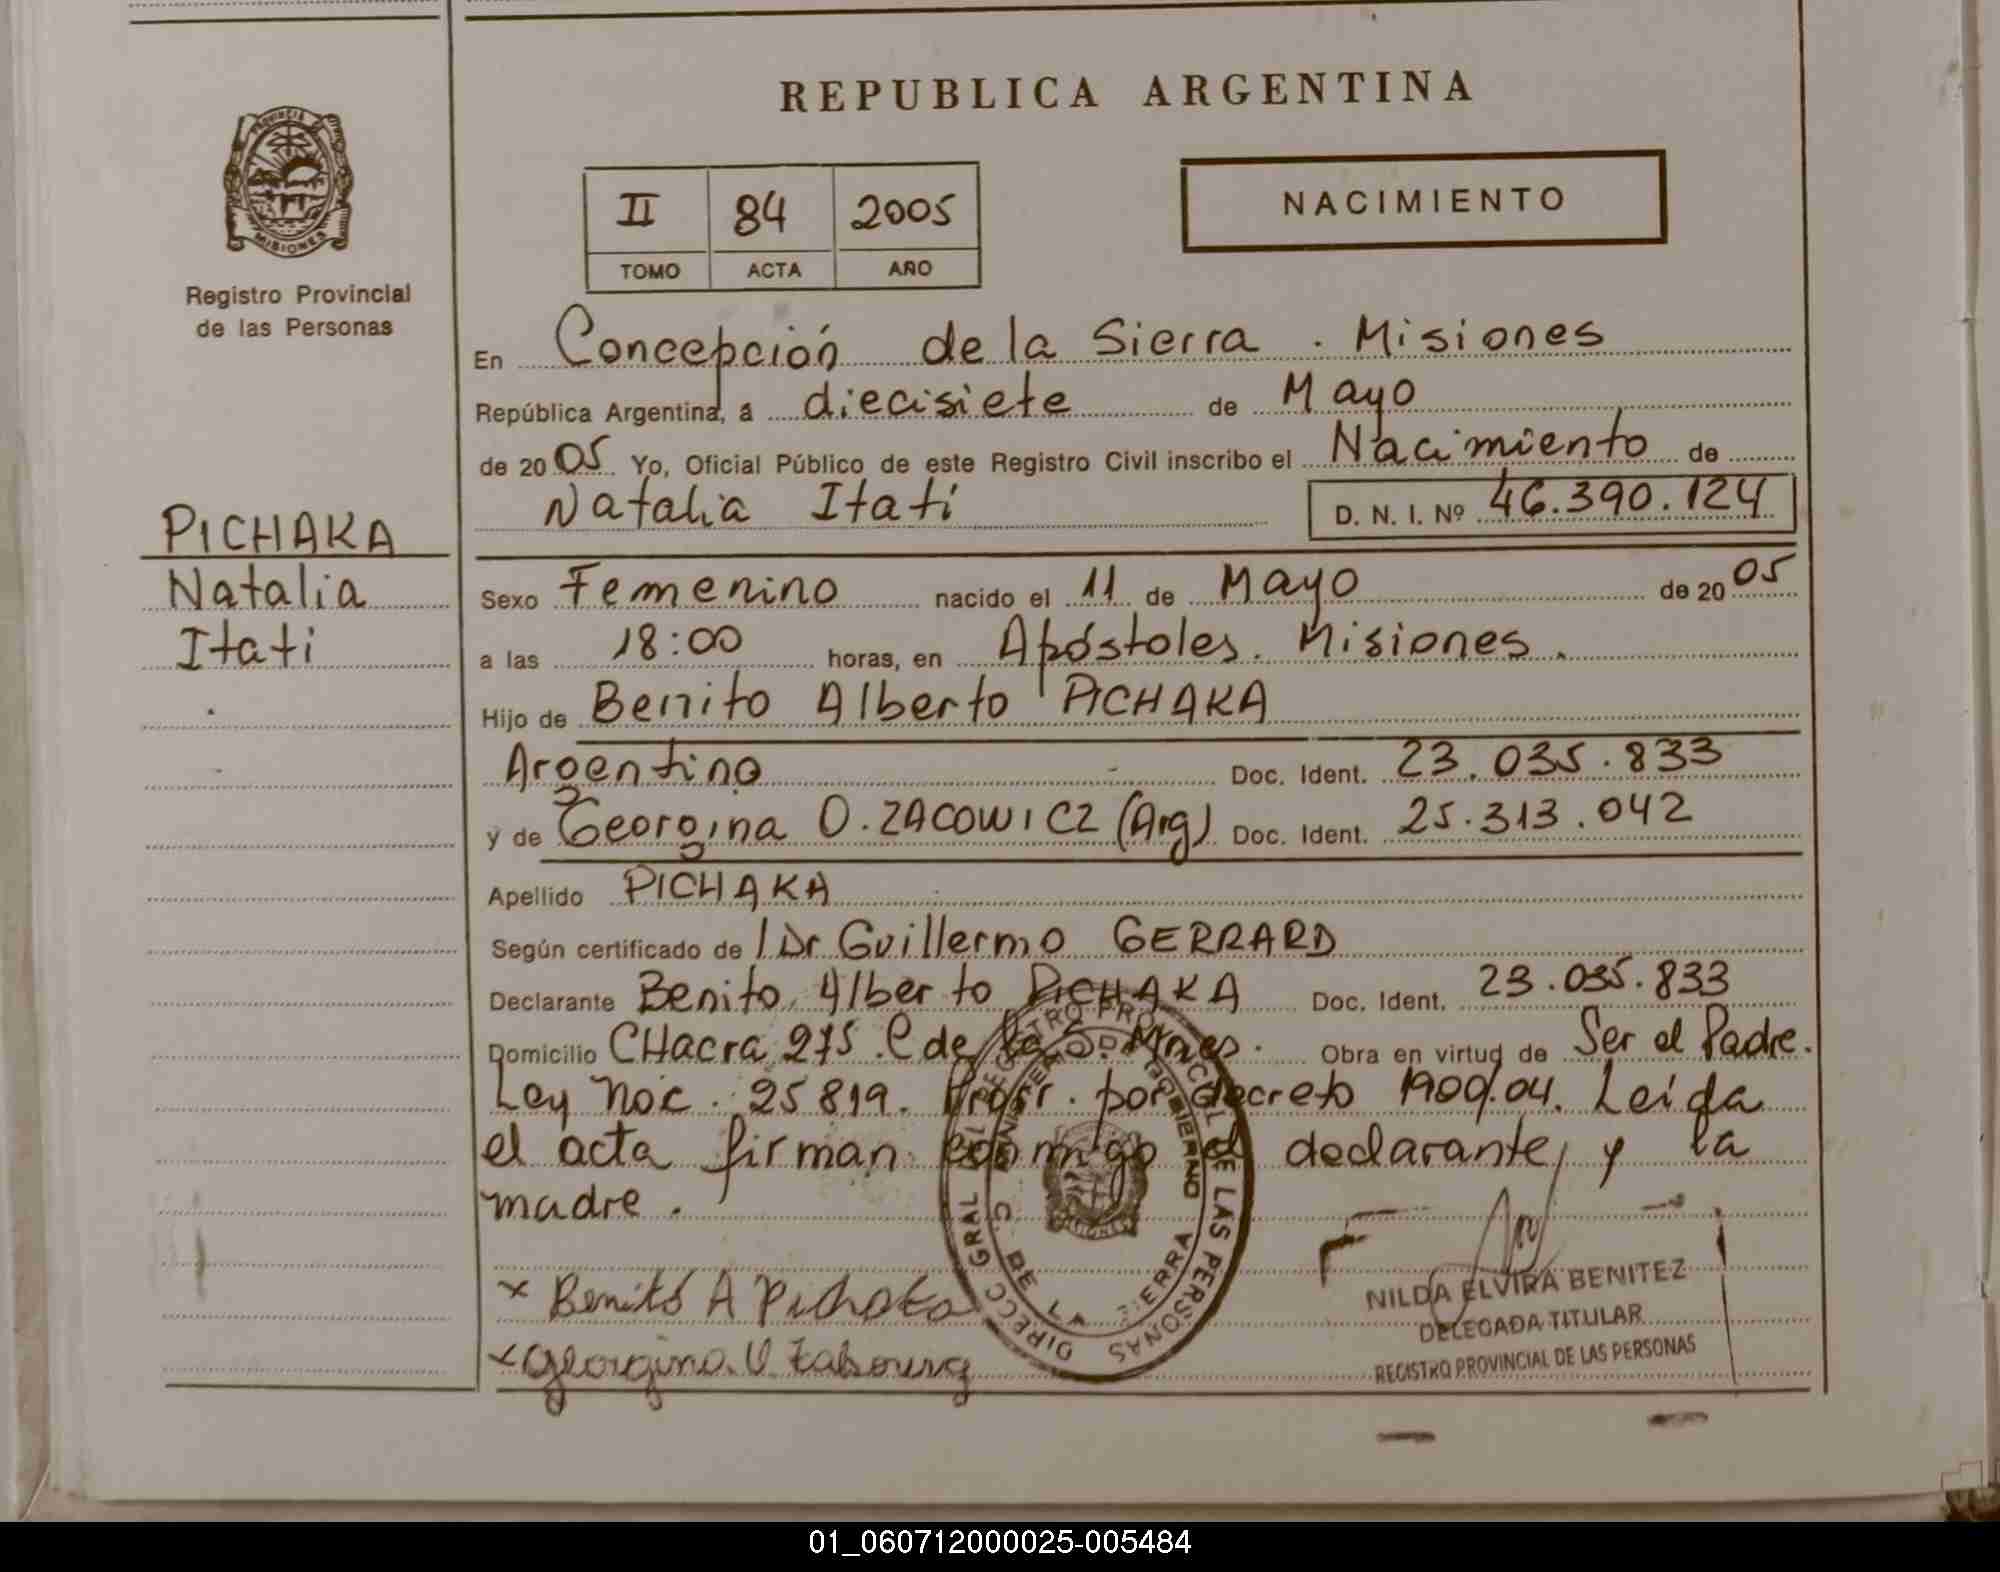 REPUBLICA ARGENTINA
PROVINCIA DE
MISIONES
Registro Provincial
de las Personas
II 84 2005
TOMO ACTA AÑO
NACIMIENTO
En Concepción de la Sierra . Misiones
República Argentina, a diecisiete de Mayo
de 2005 Yo, Oficial Público de este Registro Civil inscribo el Nacimiento de
Natalia Itati D. N. I. Nº 46.390.124
PICHAKA
Natalia
Itati
Sexo Femenino nacido el 11 de Mayo de 2005
a las 18:00 horas, en Apóstoles. Misiones.
Hijo de Benito Alberto PICHAKA
Argentino Doc. Ident. 23.035.833
y de Georgina O. ZACOWICZ (Arg) Doc. Ident. 25.313.042
Apellido PICHAKA
Según certificado de Dr Guillermo GERRARD
Declarante Benito Alberto PICHAKA Doc. Ident. 23.035.833
Domicilio CHacra 275 . C de la S. Mnes. Obra en virtud de Ser el Padre.
Ley Nac. 25819. Prorr. por decreto 1900.04. Leída
el acta firman conmigo el declarante, y la
madre.
DIRECC GRAL DEL REGISTRO PROVINCIAL DE LAS PERSONAS
C. DE LA SIERRA
Benito A Pichaka
Georgina
NILDA ELVIRA BENITEZ
DELEGADA TITULAR
REGISTRO PROVINCIAL DE LAS PERSONAS
01_060712000025-005484